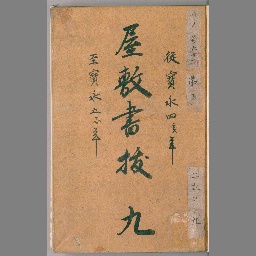 従寶永四亥年
屋敷書抜 九
至寶永五子年
九